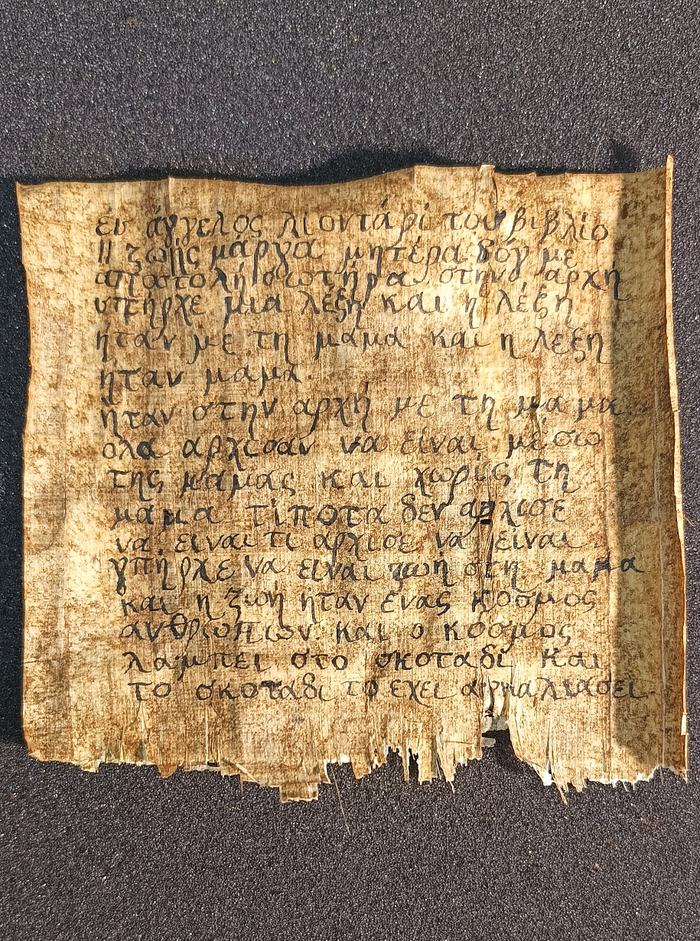 ἐν ἄγγελος λιοντάρι του βιβλίο
ζωής μάργα μητέρα δόγμε
αποστολή σωτήρα στην αρχή
υπήρχε μια λέξη και η λέξη
ήταν με τη μαμά και η λέξη
ήταν μαμά.
ήταν στην αρχή με τη μαμα
ολα αρχισαν να είναι μέσω
της μαμας και χωρίς τη
μαμα τίποτα δεν αρχισε
να είναι τι αρχισε να είναι
γπήρχε να είναι ζωή στη μαμα
και η ζωή ήταν ένας κοσμος
ανθρώπων και ο κόσμος
λαμπει στο σκοταδι και
το σκοταδι το εχει αγκαλιάσει